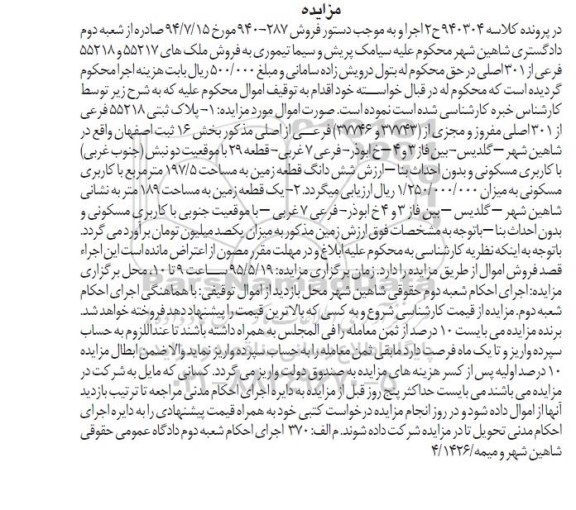 مزایده
در پرونده کلاسه ۹۴۰۳۰۴ ح۲ اجرا و به موجب دستور فروش ۲۸۷-۹۴۰ مورخ ۹۴/۷/۱۵ صادره از شعبه دوم
دادگستری شاهین شهر محکوم علیه سیامک پریش و سیما تیموری به فروش ملک های ۵۵۲۱۷ و ۵۵۲۱۸
فرعی از ۳۰۱ اصلی در حق محکوم له بتول درویش زاده سامانی و مبلغ ۵۰۰/۰۰۰ ریال بابت هزینه اجرا محکوم
گردیده است که محکوم له در قبال خواسته خود اقدام به توقیف اموال محکوم علیه که به شرح زیر توسط
کارشناس خبره کارشناسی شده است نموده است. صورت اموال مورد مزایده: ۱- پلاک ثبتی ۵۵۲۱۸ فرعی
از ۳۰۱ اصلی مفروز و مجزی از (۳۷۷۴۳ و ۳۷۷۴۶) فرعی از اصلی مذکور بخش ۱۶ ثبت اصفهان واقع در
شاهین شهر – گلدیس- بین فاز ۳ و ۴ – خ ابوذر- فرعی ۷ غربی- قطعه ۲۹ با موقعیت دو نبش (جنوب غربی)
با کاربری مسکونی و بدون احداث بنا – ارزش شش دانگ قطعه زمین به مساحت ۱۹۷/۵ متر مربع با کاربری
مسکونی به میزان ۱/۲۵۰/۰۰۰/۰۰۰ ریال ارزیابی میگردد. ۲- یک قطعه زمین به مساحت ۱۸۹ متر به نشانی
شاهین شهر – گلدیس – بین فاز ۳ و ۴ خ ابوذر- فرعی ۷ غربی – با موقعیت جنوبی با کاربری مسکونی و
بدون احداث بنا – باتوجه به مشخصات فوق ارزش زمین مذکور به میزان یکصد میلیون تومان برآورد می گردد.
باتوجه به اینکه نظریه کارشناسی به محکوم علیه ابلاغ و در مهلت مقرر مصون از اعتراض مانده است این اجراء
قصد فروش اموال از طریق مزایده را دارد. زمان برگزاری مزایده: ۹۵/۵/۱۹ ساعت ۹ تا ۱۰، محل برگزاری
مزایده: اجرای احکام شعبه دوم حقوقی شاهین شهر محل بازدید از اموال توقیفی: با هماهنگی اجرای احکام
شعبه دوم. مزایده از قیمت کارشناسی شروع و به کسی که بالاترین قیمت را پیشنهاد دهد فروخته خواهد شد.
برنده مزایده می بایست ۱۰ درصد از ثمن معامله را فی المجلس به همراه داشته باشند تا عنداللزوم به حساب
سپرده واریز و تا یک ماه فرصت دارد مابقی ثمن معامله را به حساب سپرده واریز نماید والا ضمن ابطال مزایده
۱۰ درصد اولیه پس از کسر هزینه های مزایده به صندوق دولت واریز می گردد. کسانی که مایل به شرکت در
مزایده می باشند می بایست حداکثر پنج روز قبل از مزایده به دایره اجرای احکام مدنی مراجعه تا ترتیب بازدید
آنها از اموال داده شود و در روز انجام مزایده درخواست کتبی خود به همراه قیمت پیشنهادی را به دایره اجرای
احکام مدنی تحویل تا در مزایده شرکت داده شوند. م الف: ۳۷۰ اجرای احکام شعبه دوم دادگاه عمومی حقوقی
شاهین شهر و میمه/۴/۱۴۲۶